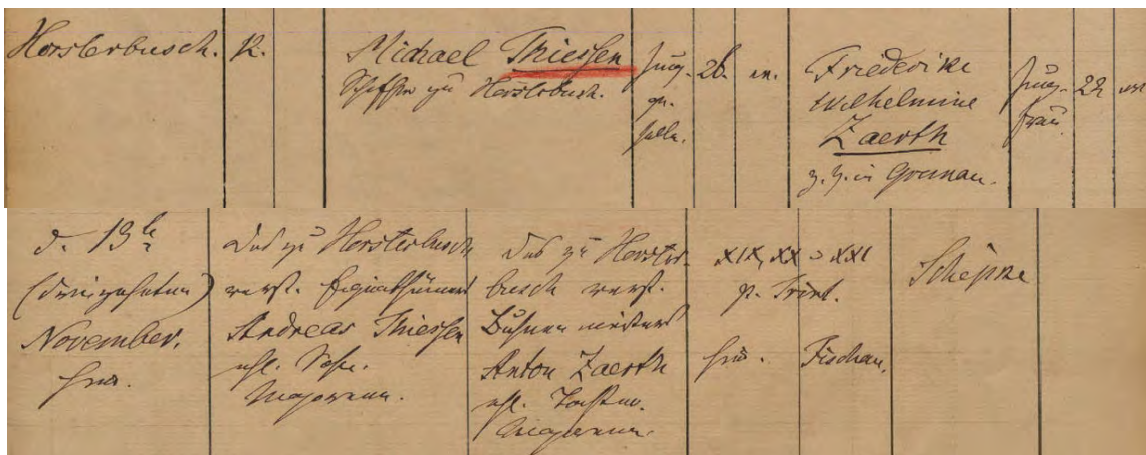 Horsterbusch. 12.
Michael Thiessen
Schiffer zu Horsterbusch.
Jung-
ge-
selle.
26. ev.
Friederike
Wilhelmine
Zaerth
z. Z. in Grunau.
Jung-
frau
22 ev
d. 13t
(dreizehnten)
November.
hier.
Des zu Horsterbusch
verst. Eigenthümers
Andreas Thiessen
ehl. Sohn.
Majorenn.
Des zu Horster-
busch verst.
Buhnenmeisters
Anton Zaerth
ehl. Tochter.
Majorenn.
XIX, XX u XXI
p. Trint.
hier. Fischau.